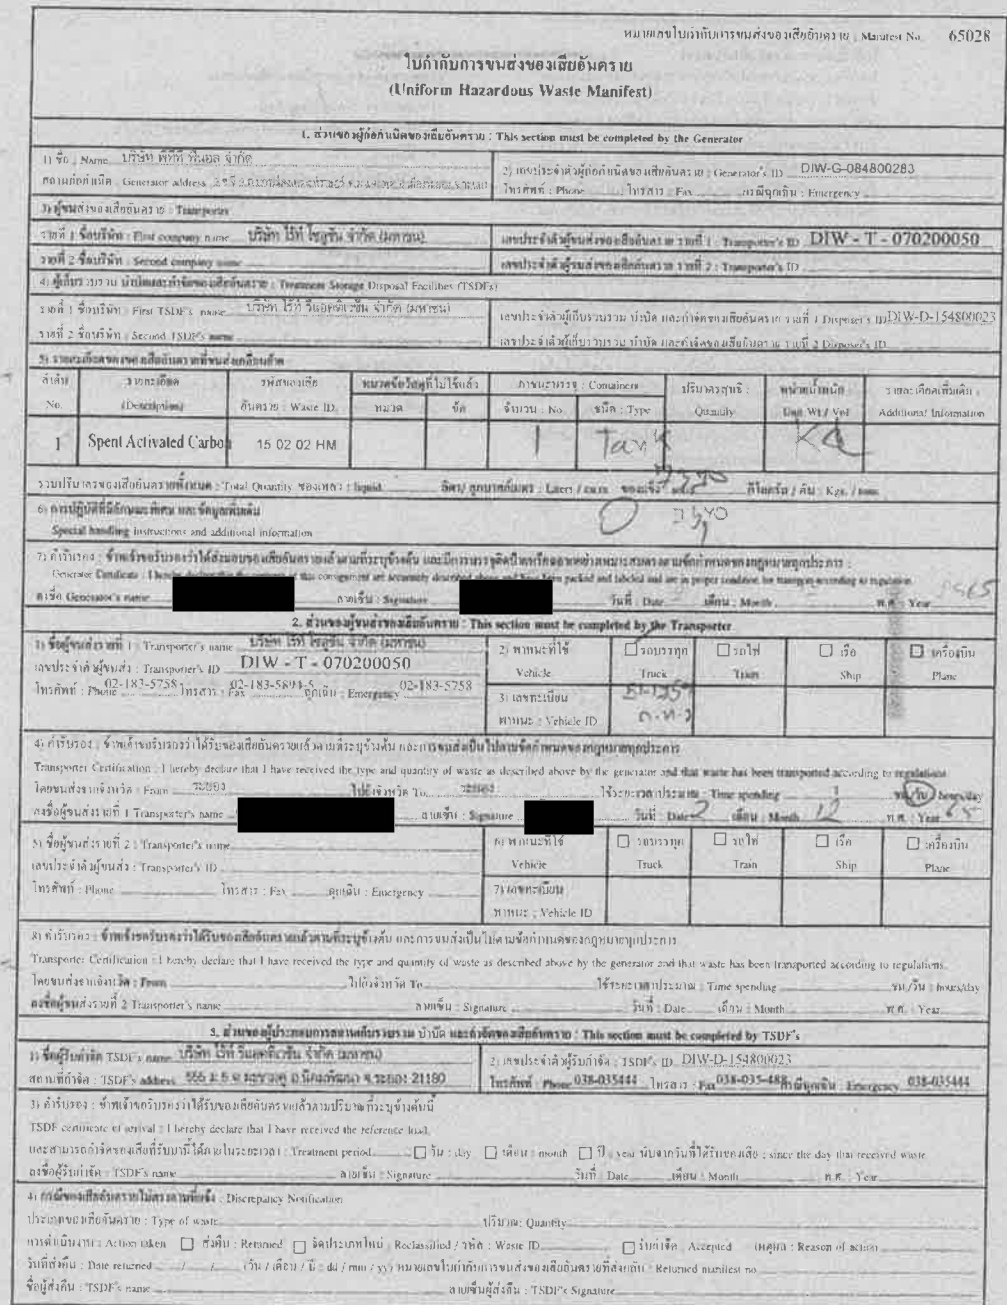 หมายเลขใบกำกับการขนส่งของเสียอันตราย : Manifest No. 65028
ใบกำกับการขนส่งของเสียอันตราย
(Uniform Hazardous Waste Manifest)
1. ส่วนของผู้ก่อกำเนิดของเสียอันตราย : This section must be completed by the Generator
1) ชื่อ : Name บริษัท พีทีที ฟีนอล จำกัด
2) เลขประจำตัวผู้ก่อกำเนิดของเสียอันตราย : Generator's ID DIW-G-084800283
สถานก่อกำเนิด : Generator address
โทรศัพท์ : Phone โทรสาร : Fax กรณีฉุกเฉิน : Emergency
3) ผู้ขนส่งของเสียอันตราย : Transporter
รายที่ 1 ชื่อบริษัท : First company name บริษัท ไร้ท์ โซลูชั่น จำกัด (มหาชน) เลขประจำตัวผู้ขนส่งของเสียอันตราย รายที่ 1 : Transporter's ID DIW - T - 070200050
รายที่ 2 ชื่อบริษัท : Second company name เลขประจำตัวผู้ขนส่งของเสียอันตราย รายที่ 2 : Transporter's ID
4) ผู้เก็บรวบรวม บำบัดและกำจัดของเสียอันตราย : Treatment Storage Disposal Facilities (TSDFs)
รายที่ 1 ชื่อบริษัท : First TSDF's name บริษัท ไร้ท์ รีแอคติเวชั่น จำกัด (มหาชน) เลขประจำตัวผู้เก็บรวบรวม บำบัด และกำจัดของเสียอันตราย รายที่ 1 Disposer's ID DIW-D-154800023
รายที่ 2 ชื่อบริษัท : Second TSDF's name เลขประจำตัวผู้เก็บรวบรวม บำบัด และกำจัดของเสียอันตราย รายที่ 2 Disposer's ID
5) รายละเอียดของของเสียอันตรายที่ขนส่งเคลื่อนย้าย
ลำดับ รายละเอียด รหัสของเสีย หมวดข้อวัสดุที่ไม่ใช้แล้ว ภาชนะบรรจุ : Containers ปริมาตรสุทธิ : หน่วยน้ำหนัก รายละเอียดเพิ่มเติม :
No. (Description) อันตราย : Waste ID. หมวด ข้อ จำนวน : No ชนิด : Type Quantity Unit Wt / Vol Additional Information
1 Spent Activated Carbon 15 02 02 HM 1 Tank
รวมปริมาตรของเสียอันตรายทั้งหมด : Total Quantity ของเหลว : liquid ลิตร/ ลูกบาศก์เมตร : Liters / cu.m ของแข็ง กิโลกรัม / ตัน : Kgs. / tons
6) การปฏิบัติที่มีลักษณะพิเศษ และ ข้อมูลเพิ่มเติม
Special handling instructions and additional information
7) คำรับรอง : ข้าพเจ้าขอรับรองว่าได้ส่งมอบของเสียอันตรายแล้วตามที่ระบุข้างต้น และมีการบรรจุ
ลงชื่อ Generator's name ลายเซ็น : Signature วันที่ : Date เดือน : Month พ.ศ. : Year
2. ส่วนของผู้ขนส่งของเสียอันตราย : This section must be completed by the Transporter
1) ชื่อผู้ขนส่งรายที่ 1 : Transporter's name บริษัท ไร้ท์ โซลูชั่น จำกัด (มหาชน) 2) พาหนะที่ใช้ รถบรรทุก รถไฟ เรือ เครื่องบิน
เลขประจำตัวผู้ขนส่ง : Transporter's ID DIW - T - 070200050 Vehicle Truck Train Ship Plane
โทรศัพท์ : Phone 02-183-5758 โทรสาร : Fax ฉุกเฉิน : Emergency 02-183-5758
3) เลขทะเบียน
พาหนะ : Vehicle ID
4) คำรับรอง : ข้าพเจ้าขอรับรองว่าได้รับของเสียอันตรายแล้วตามที่ระบุข้างต้น และการขนส่งเป็นไปตามข้อกำหนดของกฎหมายทุกประการ
Transporter Certification : I hereby declare that I have received the type and quantity of waste as described above by the generator and that waste has been transported according to regulations
โดยขนส่งจากจังหวัด : From ระยอง ไปยังจังหวัด To ระยอง ใช้ระยะเวลาประมาณ : Time spending 1 ชม/วัน : hours/day
ลงชื่อผู้ขนส่งรายที่ 1 Transporter's name ลายเซ็น : Signature วันที่ : Date 2 เดือน : Month 12 พ.ศ. : Year 65
5) ชื่อผู้ขนส่งรายที่ 2 : Transporter's name 6) พาหนะที่ใช้ รถบรรทุก รถไฟ เรือ เครื่องบิน
เลขประจำตัวผู้ขนส่ง : Transporter's ID Vehicle Truck Train Ship Plane
โทรศัพท์ : Phone โทรสาร : Fax ฉุกเฉิน : Emergency 7) เลขทะเบียน
พาหนะ : Vehicle ID
8) คำรับรอง : ข้าพเจ้าขอรับรองว่าได้รับของเสียอันตรายแล้วตามที่ระบุข้างต้น และการขนส่งเป็นไปตามข้อกำหนดของกฎหมายทุกประการ
Transporter Certification : I hereby declare that I have received the type and quantity of waste as described above by the generator and that waste has been transported according to regulations.
โดยขนส่งจากจังหวัด : From ไปยังจังหวัด To ใช้ระยะเวลาประมาณ : Time spending ชม/วัน : hours/day
ลงชื่อผู้ขนส่งรายที่ 2 Transporter's name ลายเซ็น : Signature วันที่ : Date เดือน : Month พ.ศ. : Year
3. ส่วนของผู้ประกอบการสถานเก็บรวบรวม บำบัด และกำจัดของเสียอันตราย : This section must be completed by TSDF's
1) ชื่อผู้รับกำจัด TSDF's name บริษัท ไร้ท์ รีแอคติเวชั่น จำกัด (มหาชน) 2) เลขประจำตัวผู้รับกำจัด : TSDF's ID DIW-D-154800023
สถานที่กำจัด : TSDF's address 555 ม.6 ต.มะขามคู่ อ.นิคมพัฒนา จ.ระยอง 21180 โทรศัพท์ : Phone 038-035444 โทรสาร : Fax กรณีฉุกเฉิน : Emergency 038-035444
3) คำรับรอง : ข้าพเจ้าขอรับรองว่าได้รับของเสียอันตรายแล้วตามปริมาณที่ระบุข้างต้นนี้
TSDF certificate of arrival : I hereby declare that I have received the reference load.
และสามารถกำจัดของเสียที่รับมานี้ได้ภายในระยะเวลา : Treatment period วัน : day เดือน : month ปี : year นับจากวันที่ได้รับของเสีย : since the day that received waste
ลงชื่อผู้รับกำจัด : TSDF's name ลายเซ็น : Signature วันที่ : Date เดือน : Month พ.ศ. : Year
4) กรณีของเสียอันตรายไม่ตรงตามที่แจ้ง : Discrepancy Notification
ประเภทของเสียอันตราย : Type of waste ปริมาณ: Quantity
การดำเนินงาน : Action taken ส่งคืน : Returned จัดประเภทใหม่ : Reclassified / รหัส : Waste ID รับกำจัด : Accepted เหตุผล : Reason of action
วันที่ส่งคืน : Date returned / / (วัน / เดือน / ปี : dd / mm / yy) หมายเลขใบกำกับการขนส่งของเสียอันตรายที่ส่งกลับ : Returned manifest no
ชื่อผู้ส่งคืน : TSDF's name ลายเซ็นผู้ส่งคืน : TSDF's Signature